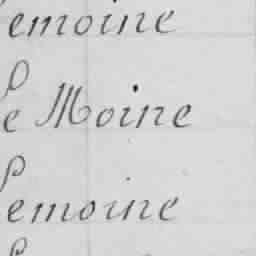 emoine
e Moine
emoine